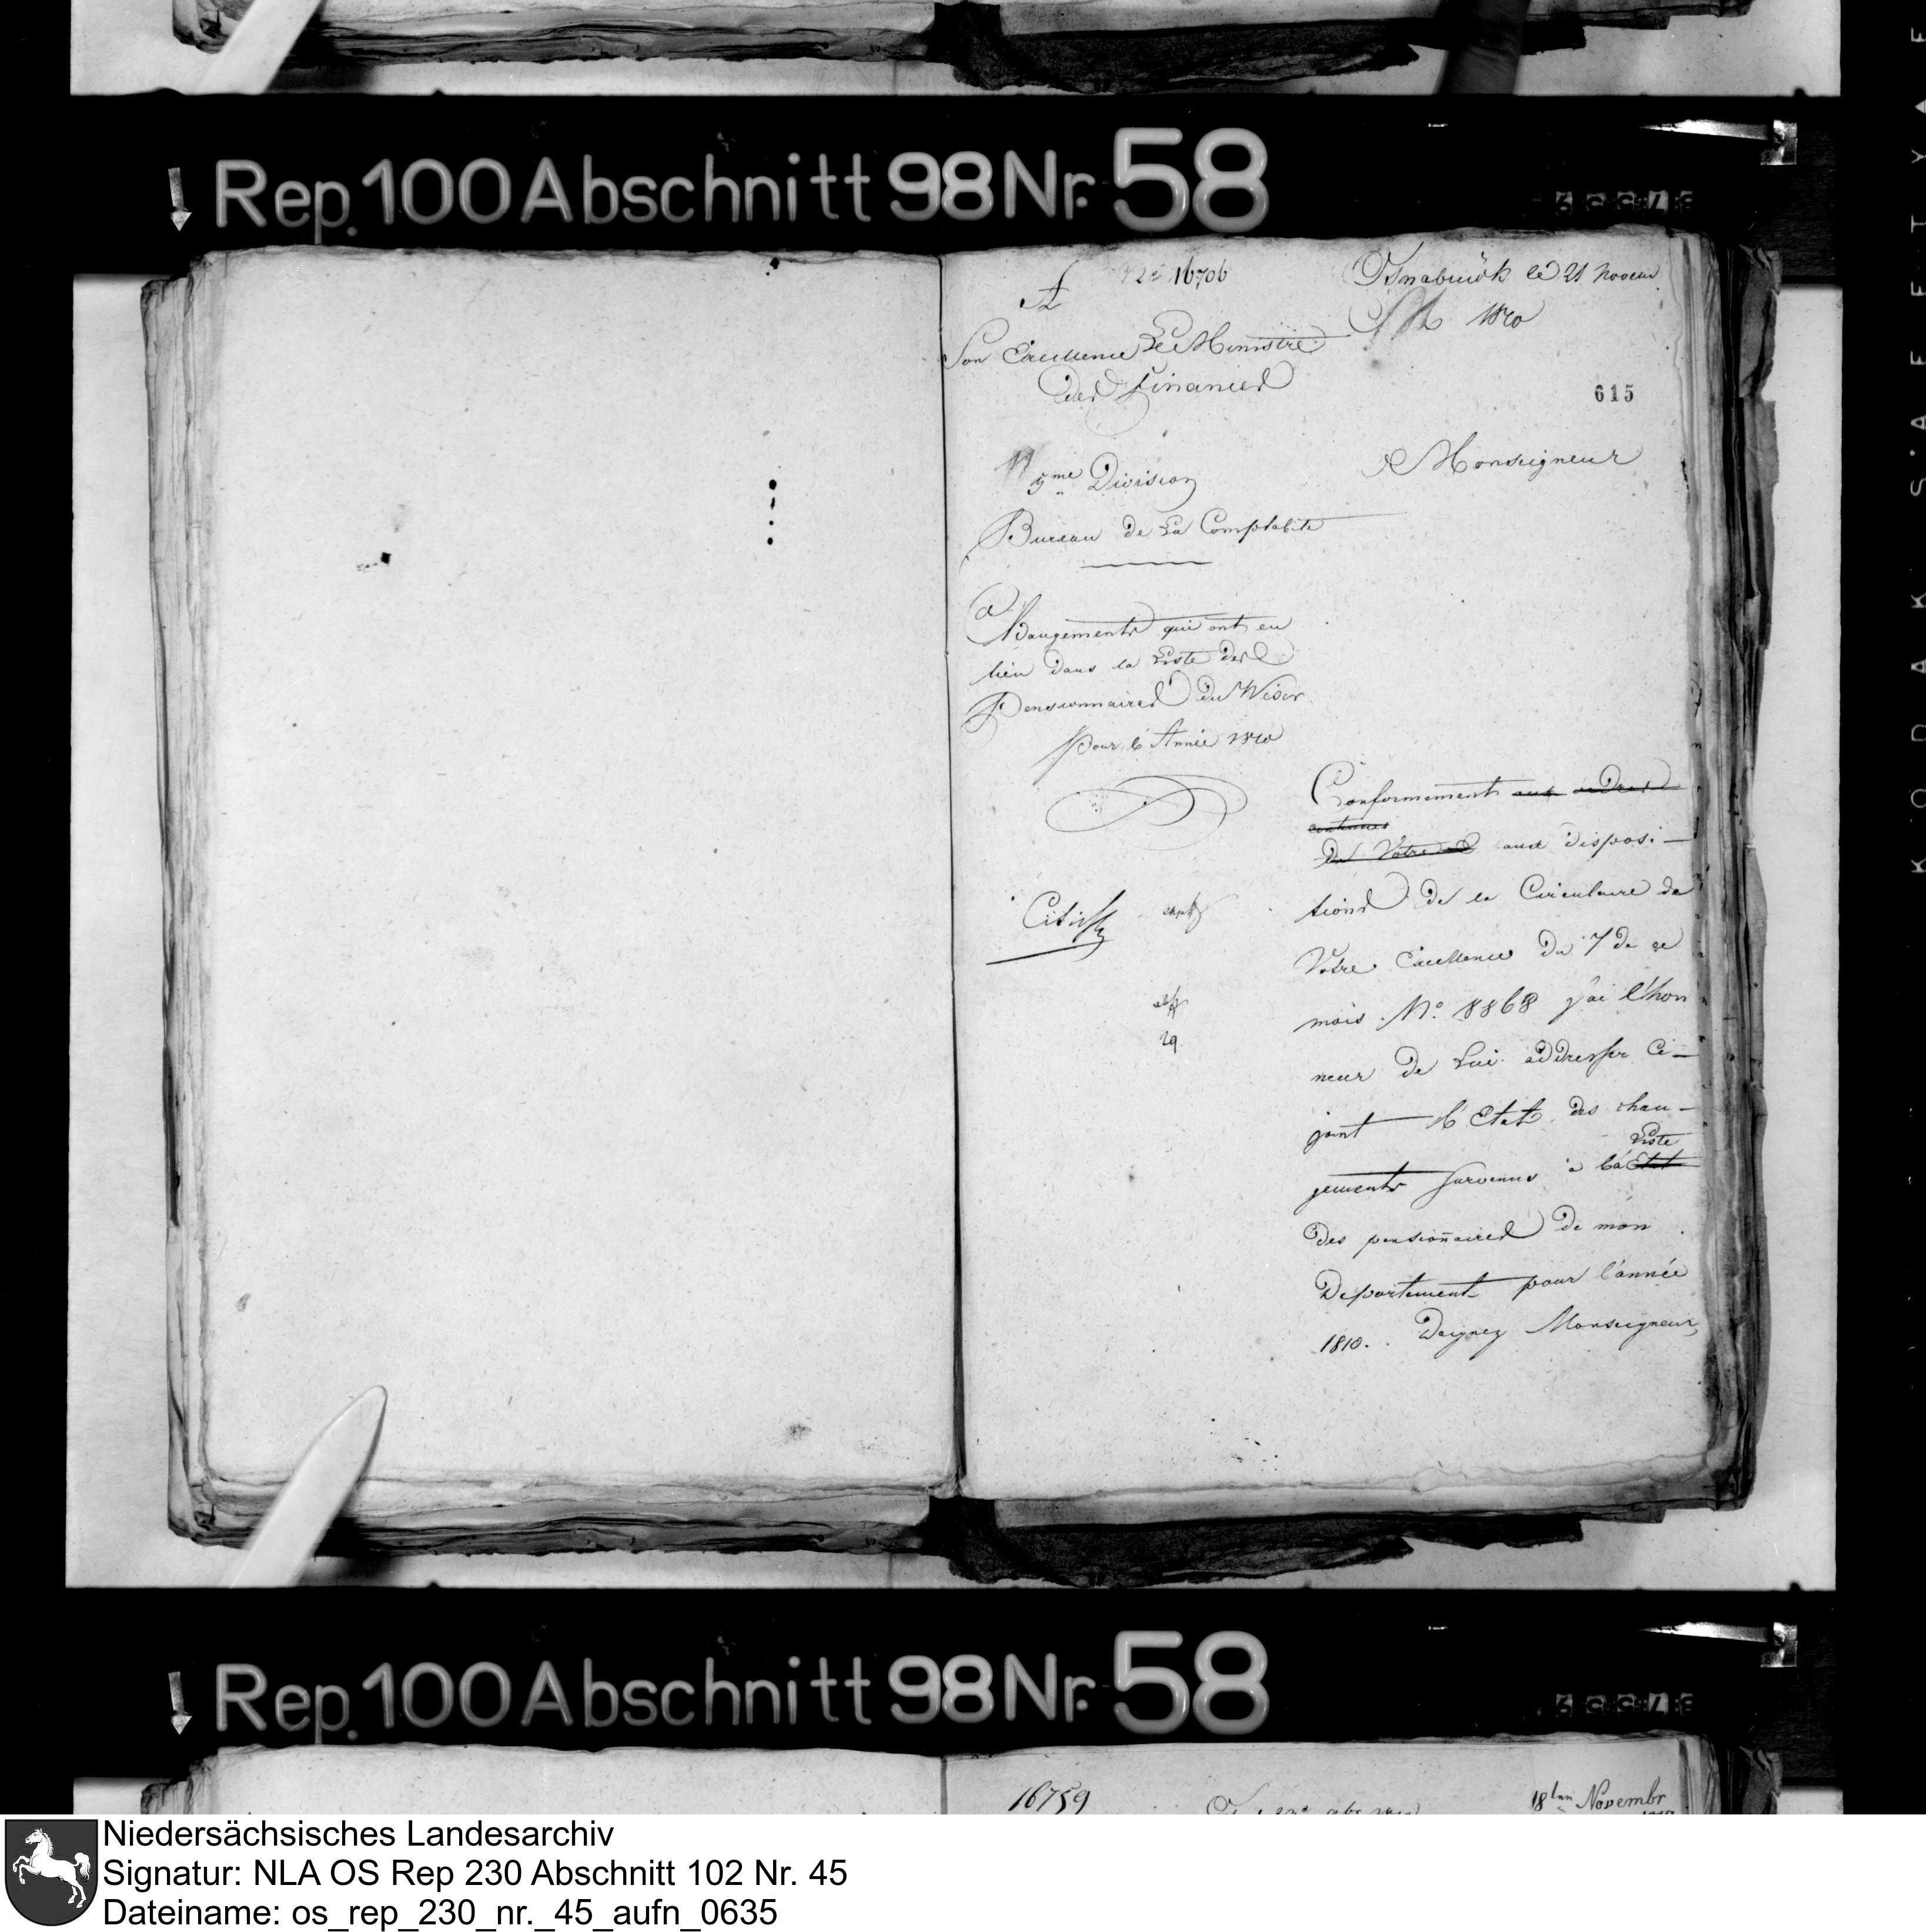 Rep. 100 Abschnitt 98 Nr. 58
16706
Osnabrück le 21 Novem
1810
A
Son Excellence Le Ministre
des Finances
615
5me Division
Monseigneur
Bureau de La Comptabité
Changements qui ont eu
lieu dans la Liste des
Pensionnaires du Weser
pour l'Année 1810
Conformement aux ordres
contenues
de Votre aux disposi-
tions de la Circulaire de
Votre Excellence du 7 de ce
mois No. 8868 j'ai l'hon
neur de Lui addresser Ci-
joint l'Etat des chan-
Liste
gements survenus à la Etat
des pensionaires de mon
Departement pour l'année
1810. Daignez Monseigneur,
Citiss
29
Rep. 100 Abschnitt 98 Nr. 58
16759
18ten Novembr
Niedersächsisches Landesarchiv
Signatur: NLA OS Rep 230 Abschnitt 102 Nr. 45
Dateiname: os_rep_230_nr._45_aufn_0635
KODAK SAFETY